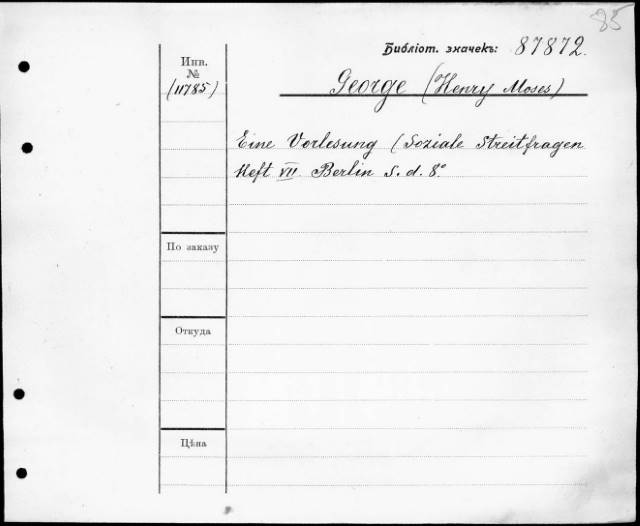 85
Библіот. значекъ: 87872.
Инв.
№
(11785)
George (Henry Moses)
Eine Vorlesung (Soziale Streitfragen
Heft VII. Berlin s. d. 8°
По заказу
Откуда
Цѣна